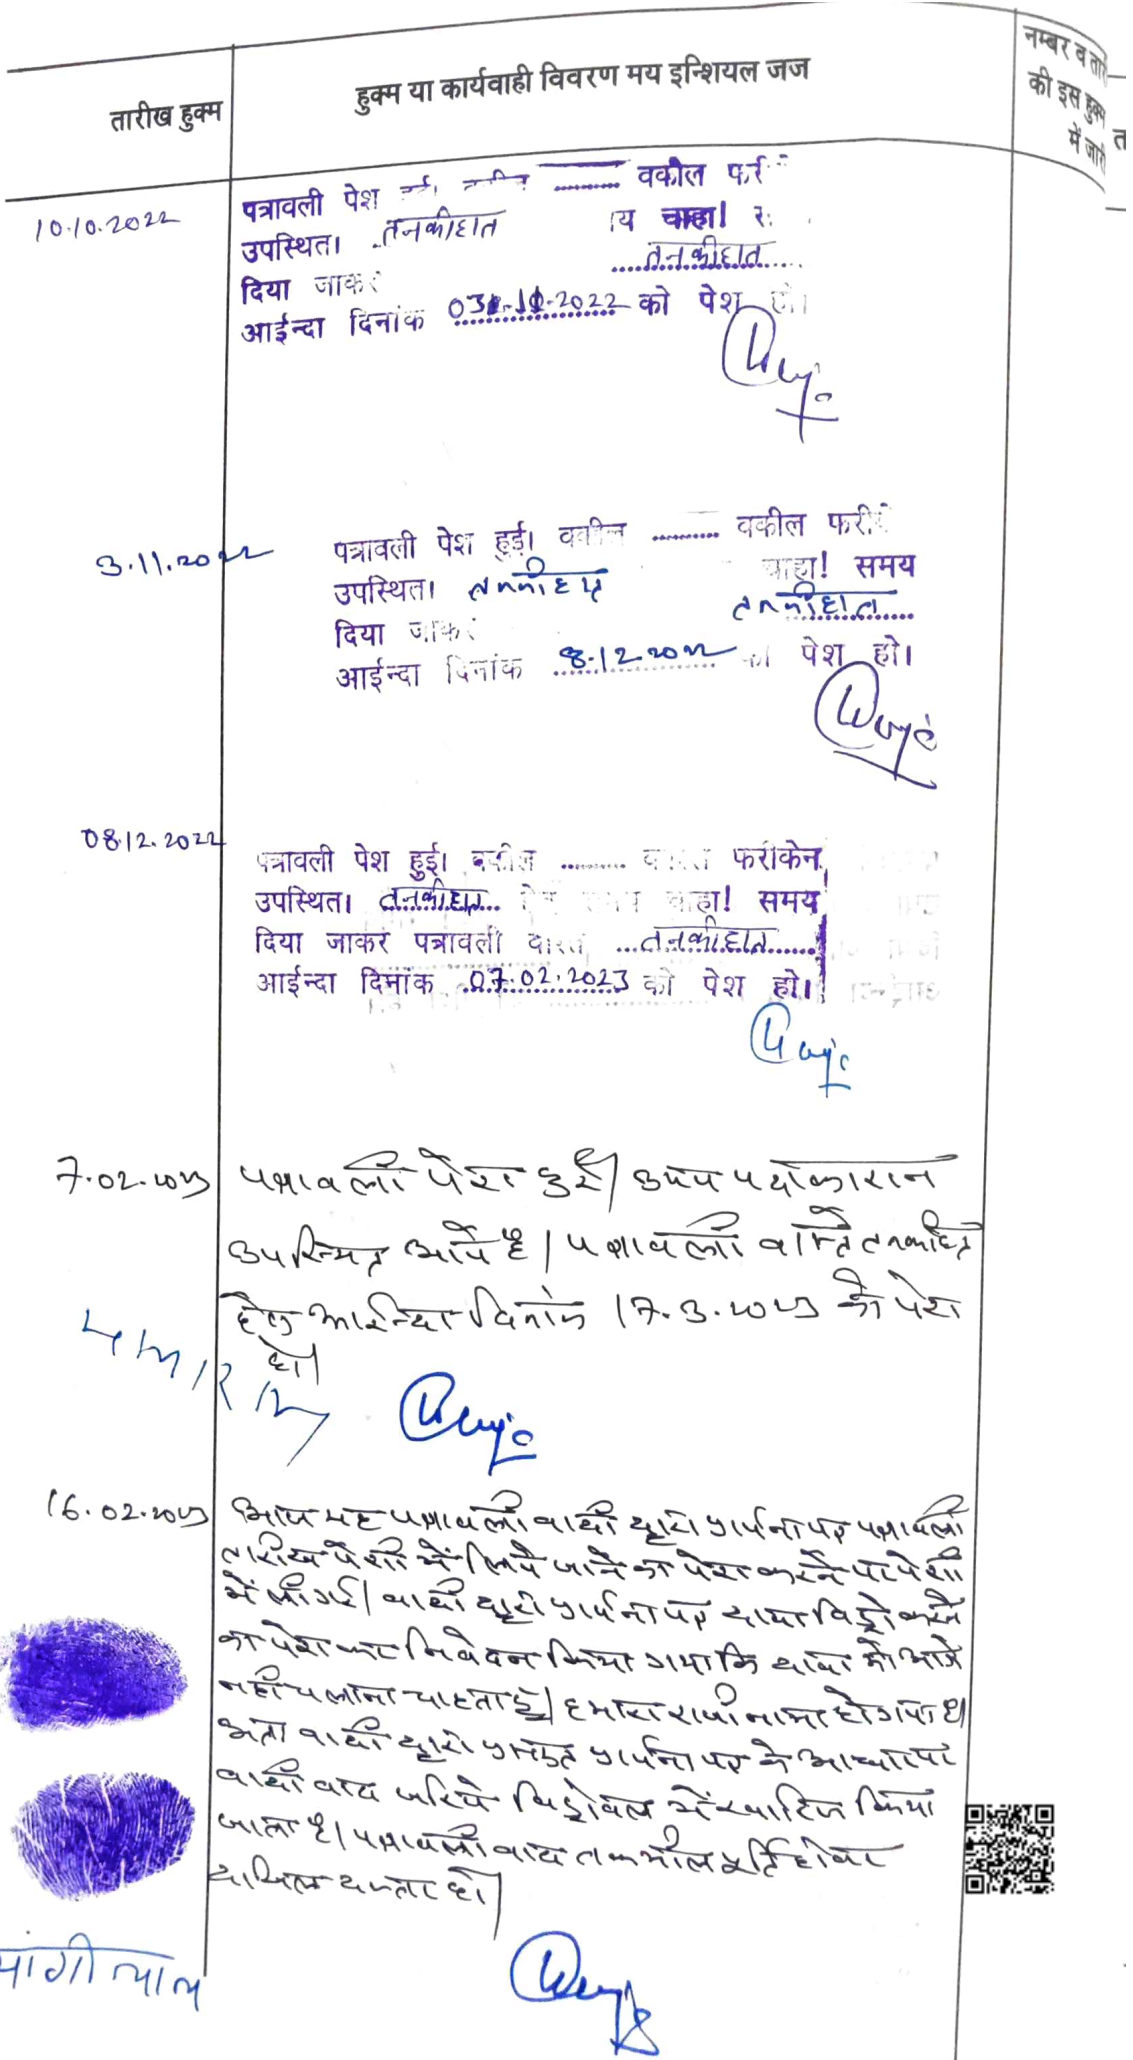 तारीख हुक्म
हुक्म या कार्यवाही विवरण मय इन्शियल जज
नम्बर व
की इस हुक्म
में जारी
10.10.2022
पत्रावली पेश वकील
उपस्थित। तनकीहात चाहा!
दिया जाकर तनकीहात
आईन्दा दिनांक 2022 को पेश हो।
3.11.2022
पत्रावली पेश हुई। वकील .......... वकील
उपस्थित। तनकीहात चाहा! समय
दिया जाकर तनकीहात
आईन्दा दिनांक 8.12.2022 को पेश हो।
08.12.2022
पत्रावली पेश हुई। वकील .......... फरीकेन
उपस्थित। तनकीहात चाहा! समय
दिया जाकर पत्रावली वास्ते तनकीहात
आईन्दा दिनांक 07.02.2023 को पेश हो।
7.02.2023
पत्रावली पेश हुई। उभय पक्षकारान
उपस्थित आये है। पत्रावली वास्ते तनकीहात
हेतु आईन्दा दिनांक 17.3.2023 को पेश
हो।
16.02.2023
आज यह पत्रावली वादी द्वारा प्रार्थना पत्र पत्रावली
तारीख पेशी में लिये जाने का पेश करने पर पेशी
में ली गई। वादी द्वारा प्रार्थना पत्र दावा विड्रो करने
का पेश कर निवेदन किया गया कि दावा को आगे
नही चलाना चाहता हूं। हमारा राजीनामा हो गया है।
अतः वादी द्वारा प्रस्तुत प्रार्थना पत्र के आधार पर
वादी वाद जरिये विड्रोवल में खारिज किया
जाता है। पत्रावली बाद तकमील पूर्ति होकर
दाखिल दफ्तर हो।